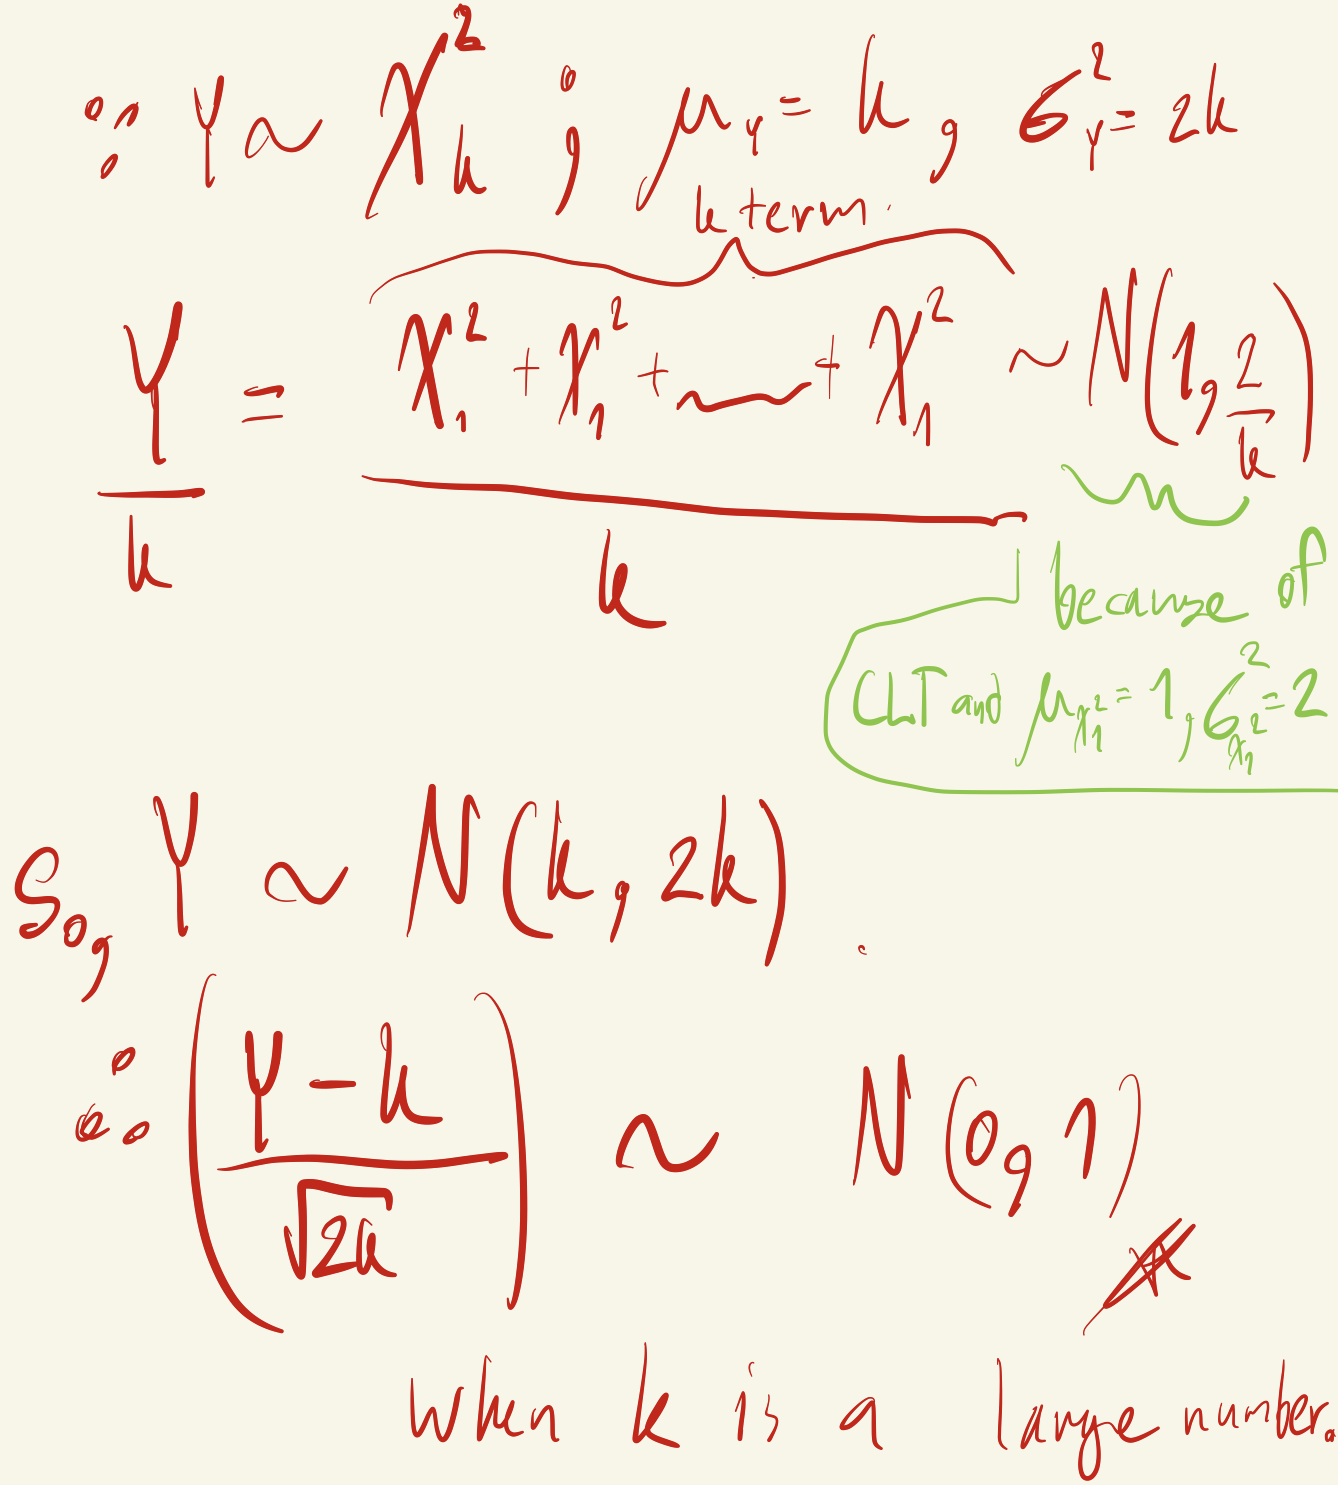 ∵ Y ~ χ²ₖ ; μ_Y = k , σ²_Y = 2k
k term.
Y/k = (χ²₁ + χ²₁ + ... + χ²₁)/k ~ N(1, 2/k)
because of
CLT and μ_χ²₁ = 1, σ²_χ²₁ = 2
So, Y ~ N(k, 2k).
∴ ((Y - k)/√2k) ~ N(0, 1)
when k is a large number.